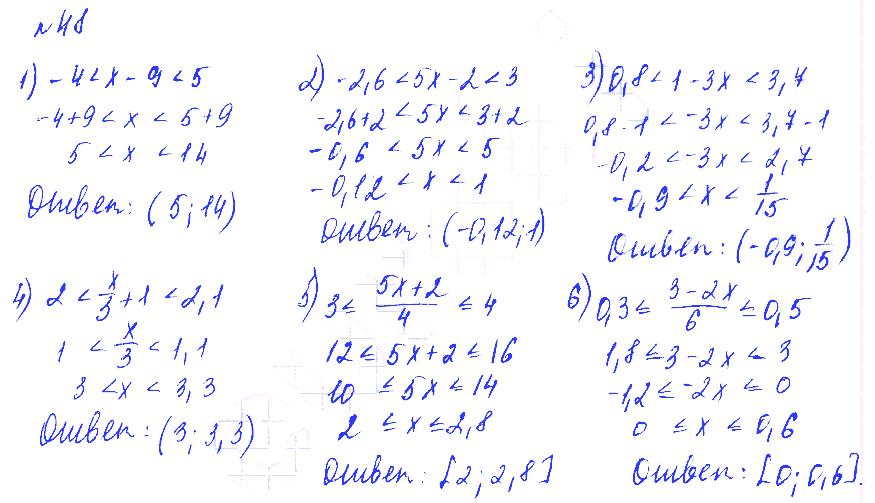 №48
1) -4 < x - 9 < 5
-4+9 < x < 5+9
5 < x < 14
Ответ: (5; 14)
2) -2,6 < 5x - 2 < 3
-2,6+2 < 5x < 3+2
-0,6 < 5x < 5
-0,12 < x < 1
Ответ: (-0,12; 1)
3) 0,8 < 1 - 3x < 3,7
0,8-1 < -3x < 3,7-1
-0,2 < -3x < 2,7
-0,9 < x < 1/15
Ответ: (-0,9; 1/15)
4) 2 < x/3 + 1 < 2,1
1 < x/3 < 1,1
3 < x < 3,3
Ответ: (3; 3,3)
5) 3 ≤ (5x+2)/4 ≤ 4
12 ≤ 5x+2 ≤ 16
10 ≤ 5x ≤ 14
2 ≤ x ≤ 2,8
Ответ: [2; 2,8]
6) 0,3 ≤ (3-2x)/6 ≤ 0,5
1,8 ≤ 3-2x ≤ 3
-1,2 ≤ -2x ≤ 0
0 ≤ x ≤ 0,6
Ответ: [0; 0,6].